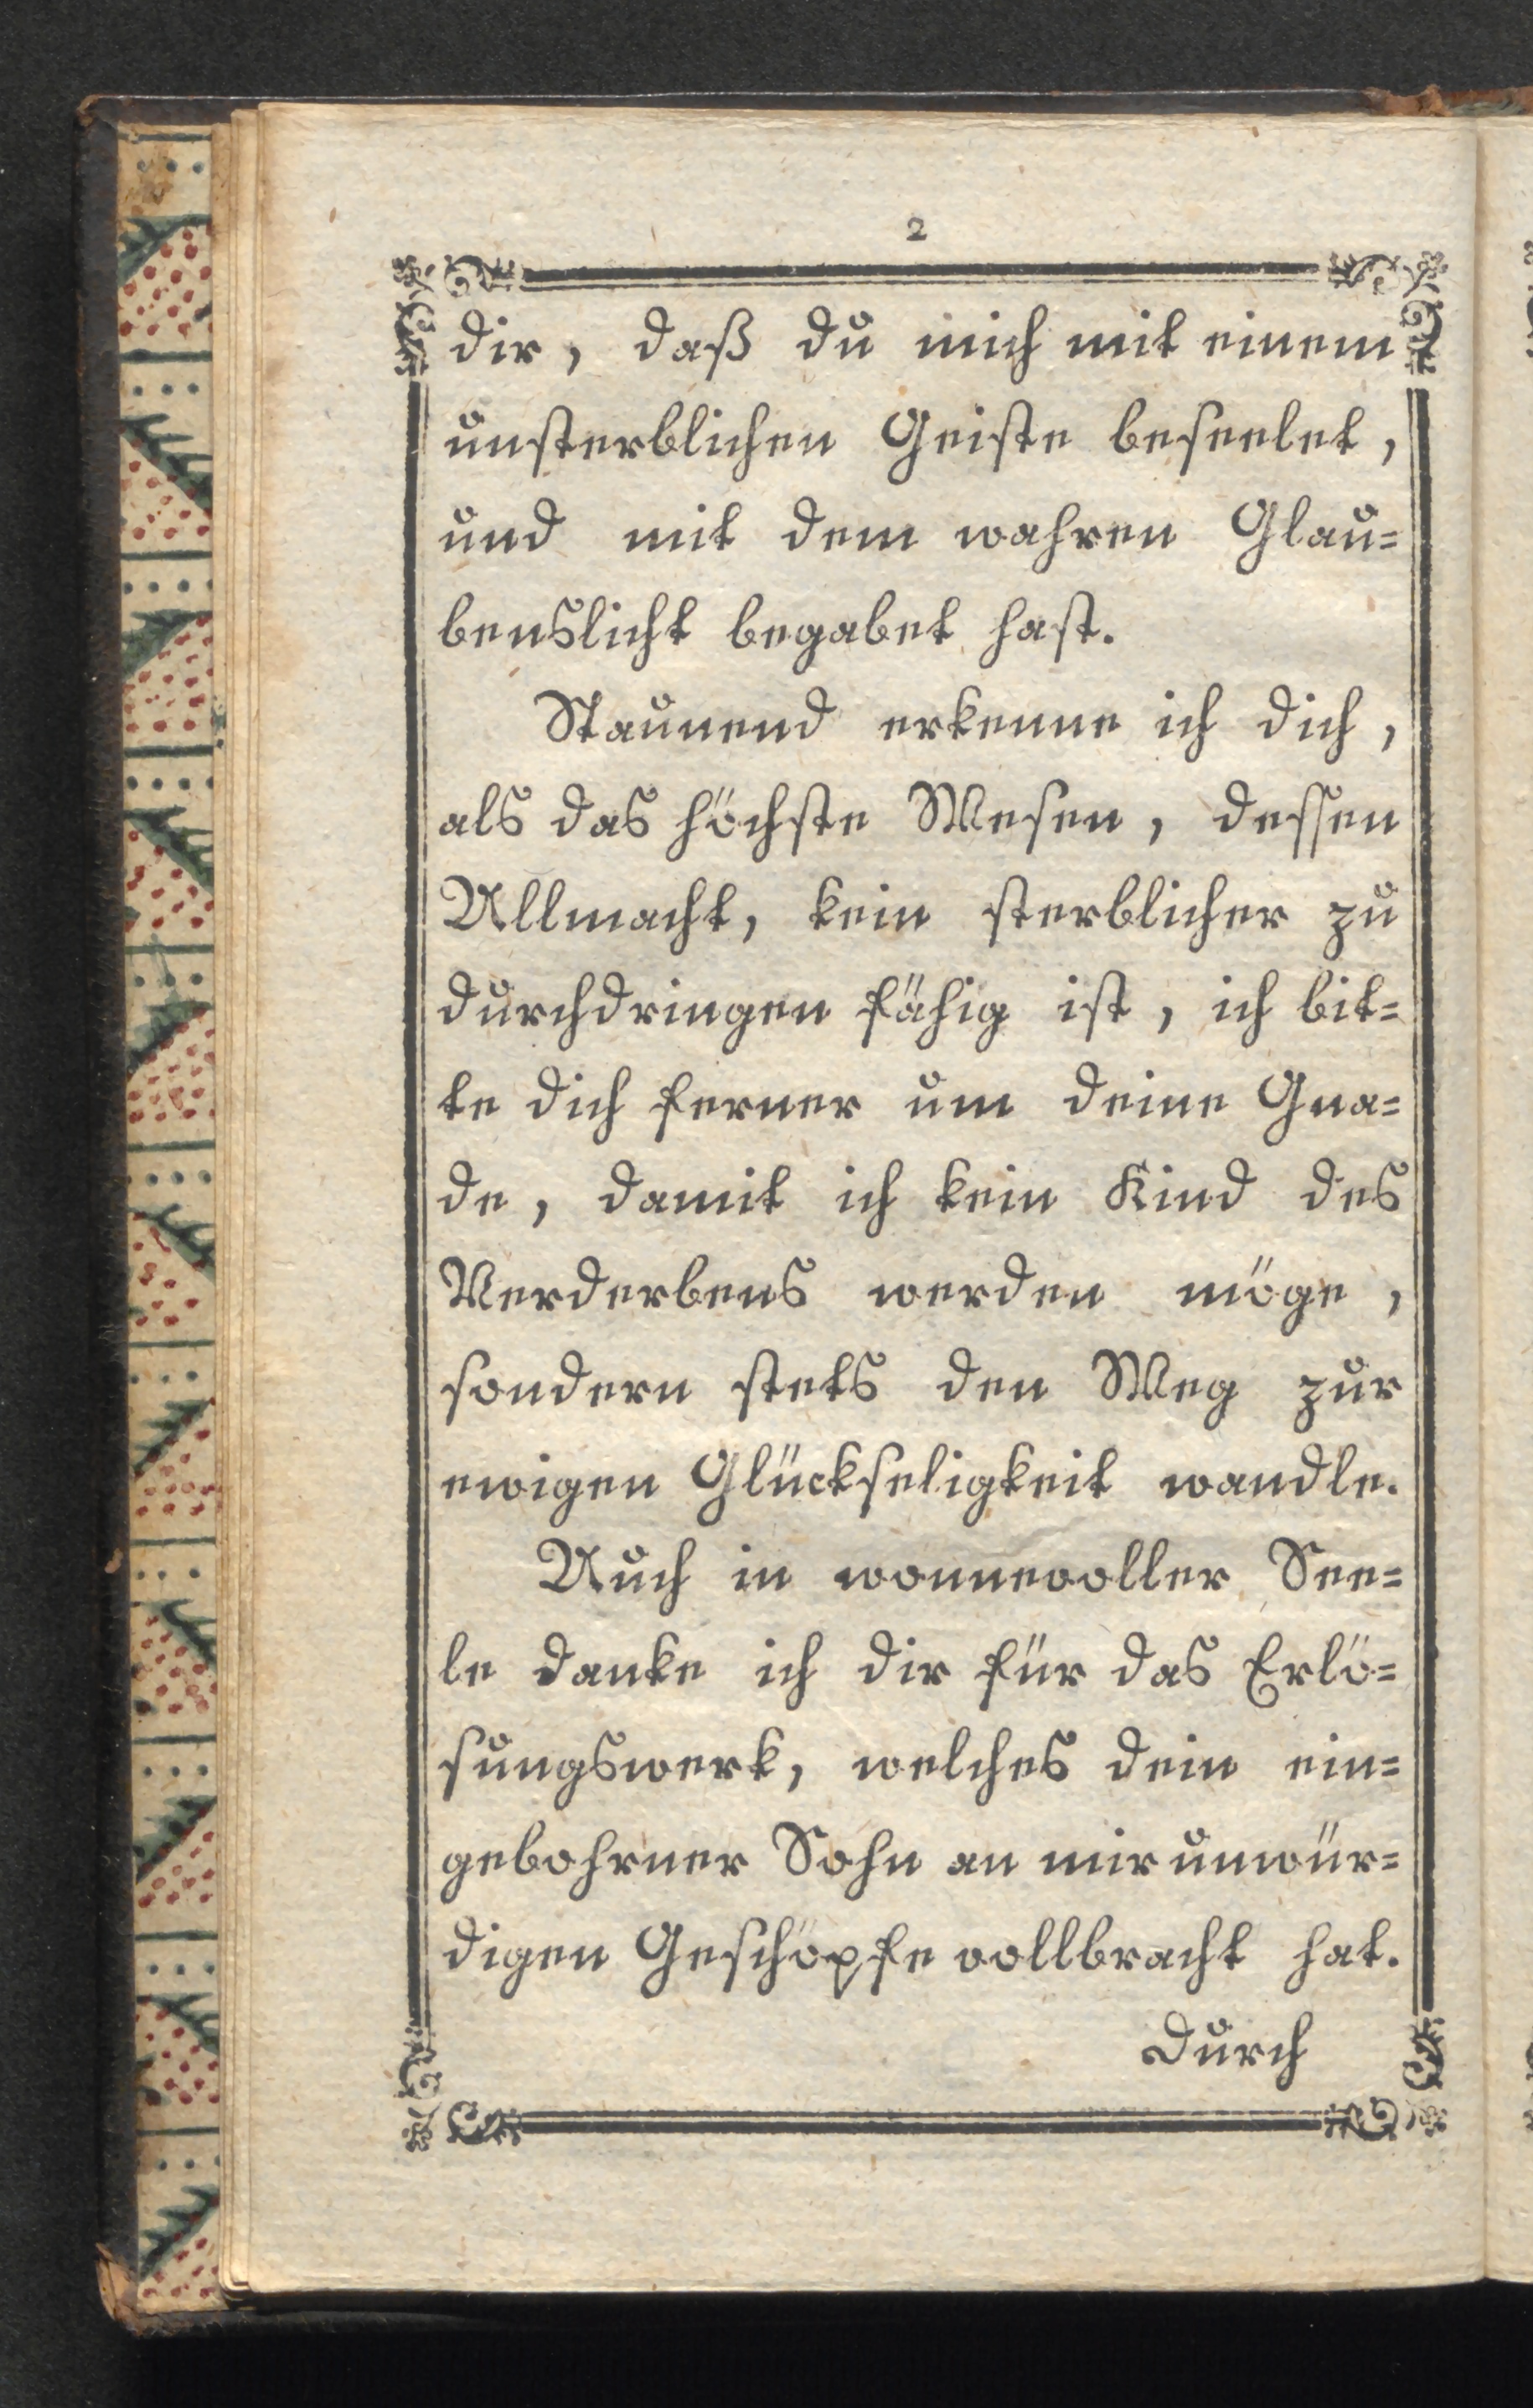 2
dir, daß du mich mit einem
unsterblichen Geiste beseelet,
und mit dem wahren Glau=
benslicht begabet hast.
Staunend erkenne ich dich,
als das höchste Wesen, dessen
Allmacht, kein sterblicher zu
durchdringen fähig ist, ich bit=
te dich ferner um deine Gna=
de, damit ich kein Kind des
Verderbens werden möge,
sondern stets den Weg zur
ewigen Glückseligkeit wandle.
Auch in wonnevoller See=
le danke ich dir für das Erlö=
sungswerk, welches dein ein=
gebohrner Sohn an mir unwür=
digen Geschöpfe vollbracht hat.
Durch